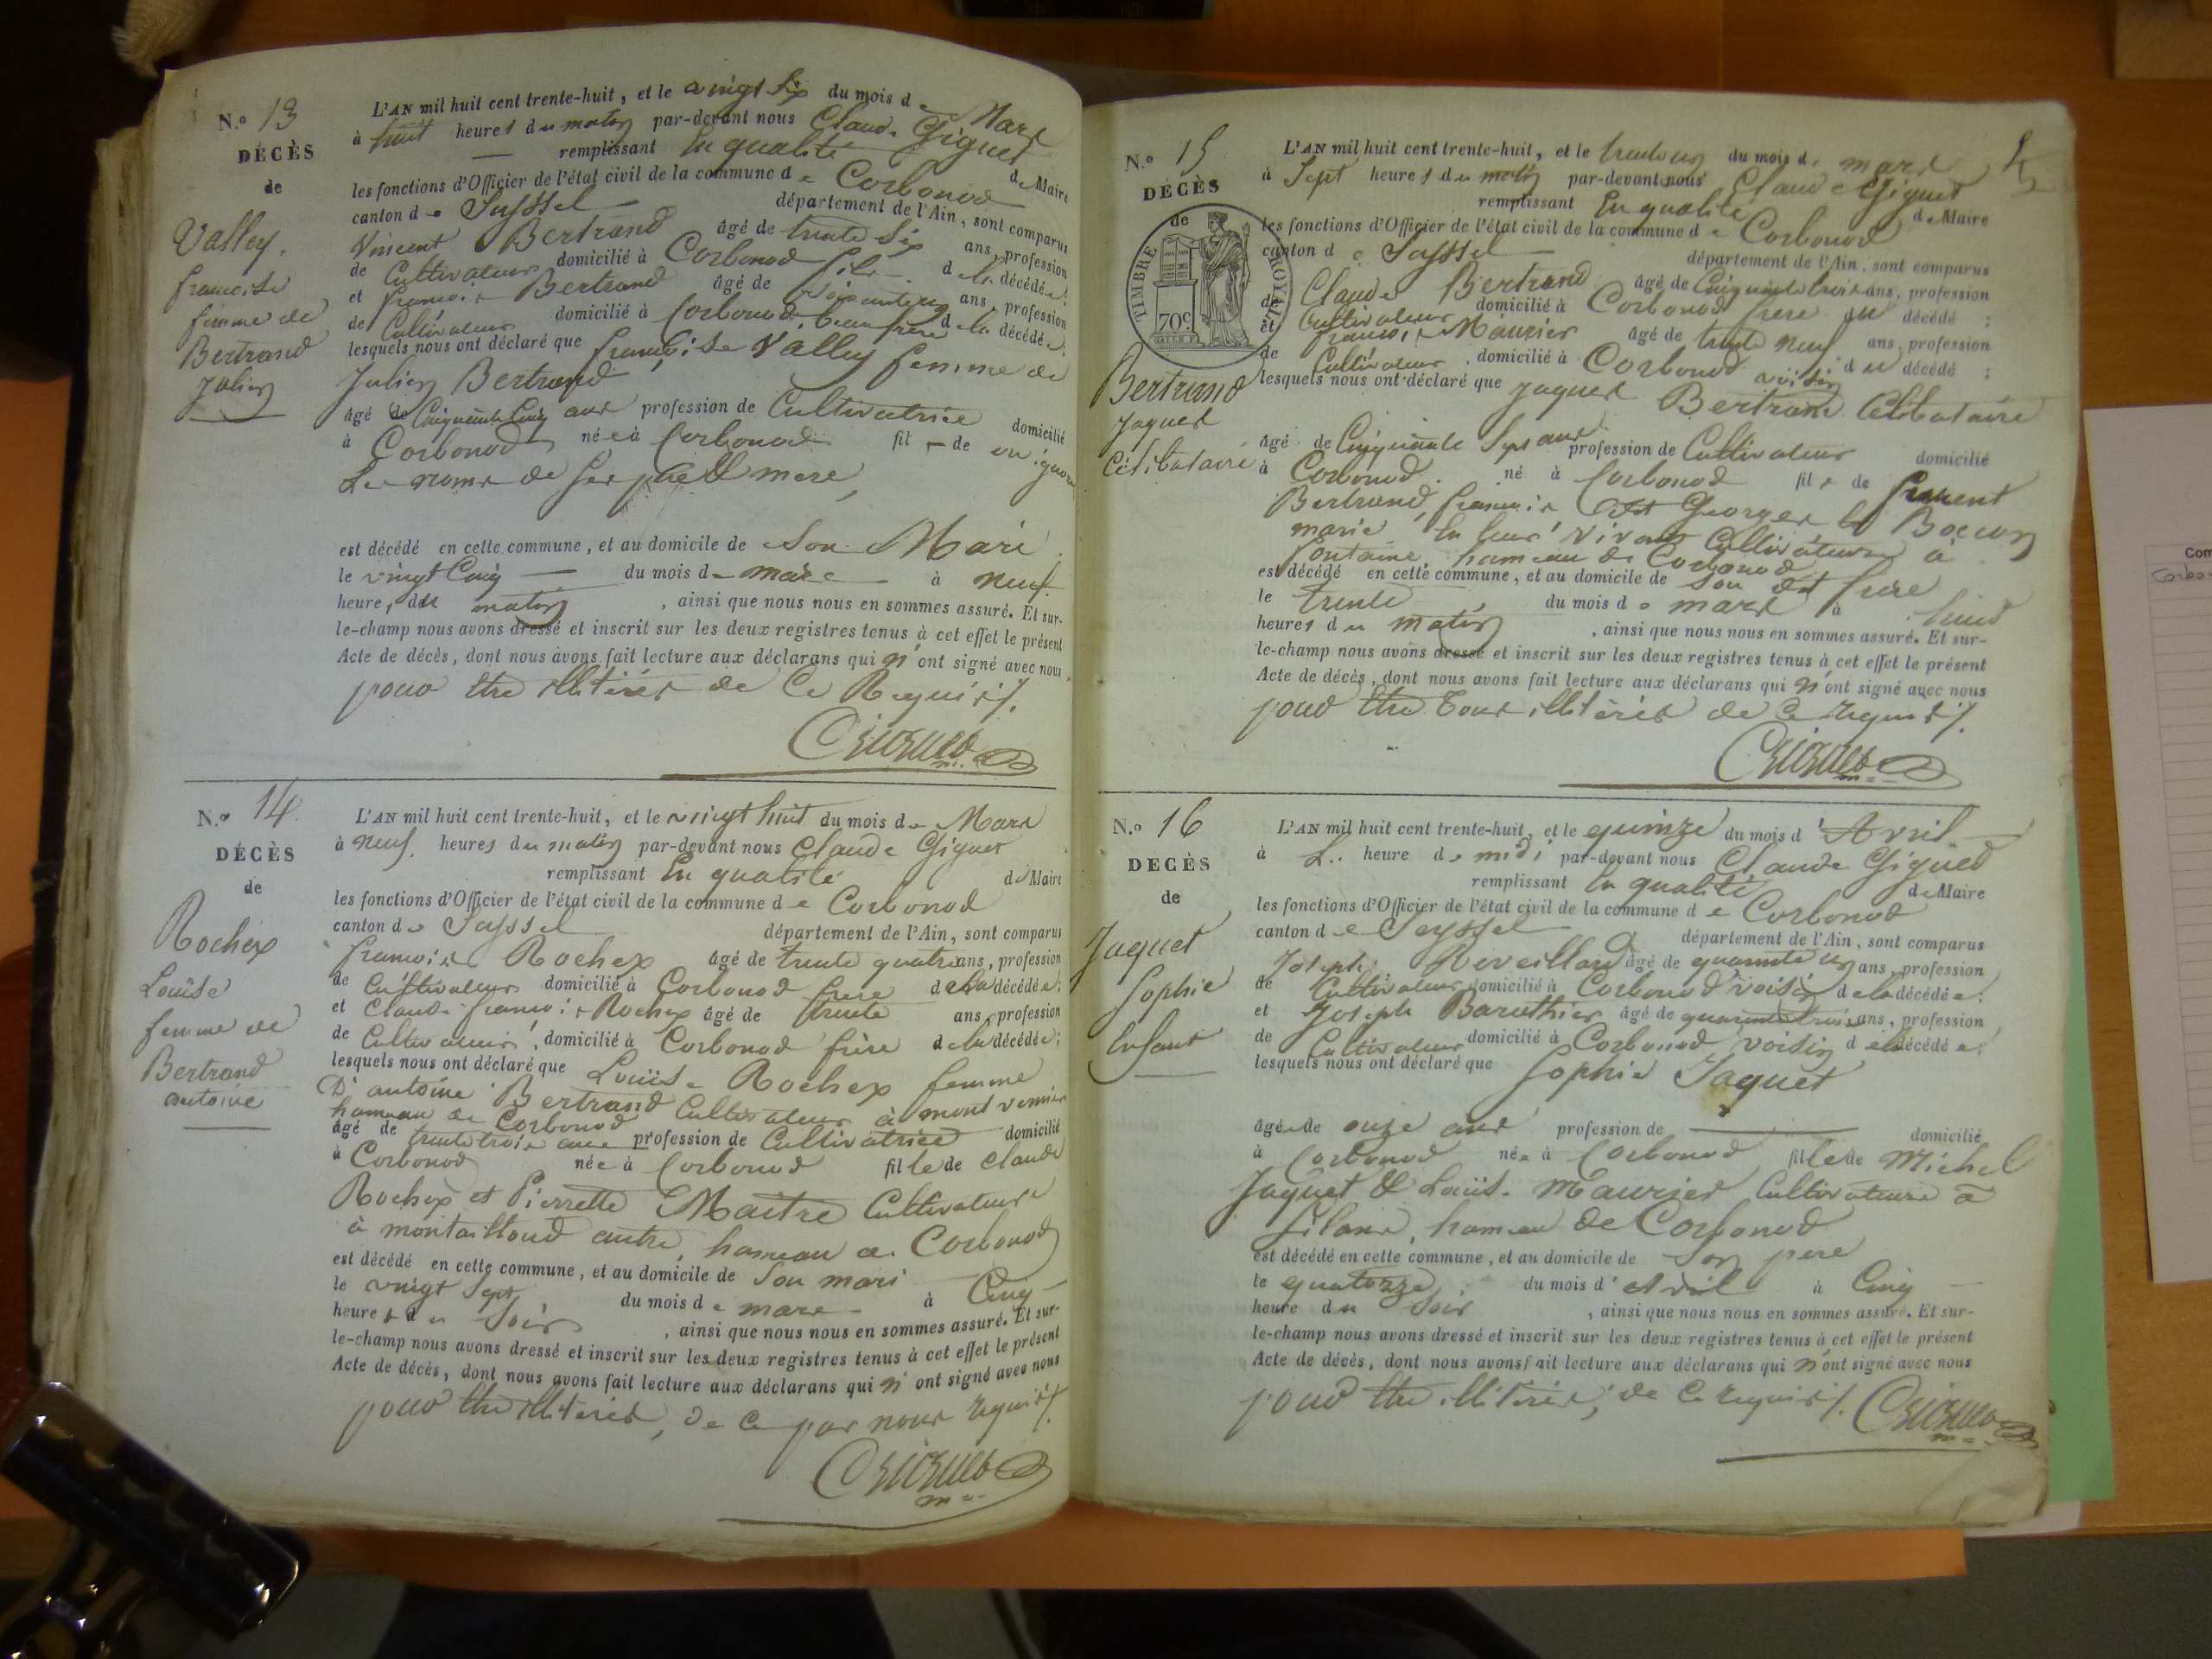 N.o 13
DÉCÈS
de
Valley,
francoise
femme de
Bertrand
Julien
L'AN mil huit cent trente-huit, et le vingt six du mois de Mars
à huit heures du matin par-devant nous Claude Giguet
remplissant En qualité de Maire
les fonctions d'Officier de l'état civil de la commune de Corbonod
canton de Seyssel département de l'Ain, sont comparus
Vincent Bertrand âgé de trente six ans, profession
de Cultivateur domicilié à Corbonod fils de la décédée;
et francois Bertrand âgé de ans, profession
de Cultivateur domicilié à Corbonod, beau frere de la décédée;
lesquels nous ont déclaré que françoise Valley femme de
Julien Bertrand
âgé de Cinquante Cinq ans profession de Cultivatrice domicilié
à Corbonod née à Corbonod fil de on ignore
Les noms de ses père & mere,
est décédé en cette commune, et au domicile de Son Mari
le vingt Cinq du mois de mars à neuf
heure, du matin, ainsi que nous nous en sommes assuré. Et sur-
le-champ nous avons dressé et inscrit sur les deux registres tenus à cet effet le présent
Acte de décès, dont nous avons fait lecture aux déclarans qui n'ont signé avec nous,
pour être illitérés de Ce Requis /.
Giguet
N.o 14
DÉCÈS
de
Rochex
Louise
femme de
Bertrand
antoine
L'AN mil huit cent trente-huit, et le vingt huit du mois de Mars
à neuf heures du matin par-devant nous Claude Giguet
remplissant En qualité de Maire
les fonctions d'Officier de l'état civil de la commune de Corbonod
canton de Seyssel département de l'Ain, sont comparus
francois Rochex âgé de trente quatre ans, profession
de Cultivateur domicilié à Corbonod frere de la décédée;
et Claude francois Rochex âgé de trente ans, profession
de Cultivateur, domicilié à Corbonod frère de la décédée;
lesquels nous ont déclaré que Louise Rochex femme
D'antoine Bertrand Cultivateur à mont vernier
hameau de Corbonod
âgé de trente trois ans profession de Cultivatrice domicilié
à Corbonod née à Corbonod fille de Claude
Rochex et Pierrette Maitre Cultivateurs
à montailloud autre hameau de Corbonod
est décédé en cette commune, et au domicile de Son mari
le vingt Sept du mois de mars à Cinq
heures du Soir, ainsi que nous nous en sommes assuré. Et sur-
le-champ nous avons dressé et inscrit sur les deux registres tenus à cet effet le présent
Acte de décès, dont nous avons fait lecture aux déclarans qui n'ont signé avec nous
pour être illitérés, de Ce par nous requis /.
Giguet
N.o 15
DÉCÈS
de
TIMBRE ROYAL
70c
Bertrand
Jaques
Célibataire
L'AN mil huit cent trente-huit, et le trente un du mois de mars
à Sept heures du matin par-devant nous Claude Giguet
remplissant En qualité de Maire
les fonctions d'Officier de l'état civil de la commune de Corbonod
canton de Seyssel département de l'Ain, sont comparus
Claude Bertrand âgé de Cinquante trois ans, profession
de Cultivateur domicilié à Corbonod frere du décédé;
et francois Maurier âgé de trente neuf ans, profession
de Cultivateur, domicilié à Corbonod voisin du décédé;
lesquels nous ont déclaré que Jaques Bertrand Célibataire
âgé de Cinquante Sept ans profession de Cultivateur domicilié
à Corbonod né à Corbonod fils de
Bertrand, francois Georges & Boccon
marie En leurs vivant Cultivateurs à
fontaine, hameau de Corbonod
est décédé en cette commune, et au domicile de Son dit frère
le trente du mois de mars à huit
heures du matin, ainsi que nous nous en sommes assuré. Et sur-
le-champ nous avons dressé et inscrit sur les deux registres tenus à cet effet le présent
Acte de décès, dont nous avons fait lecture aux déclarans qui n'ont signé avec nous
pour être Tous illitérés de Ce requis /.
Giguet
N.o 16
DÉCÈS
de
Jaquet
Sophie
Enfant
L'AN mil huit cent trente-huit, et le quinze du mois d'Avril
à L'heure de midi par-devant nous Claude Giguet
remplissant En qualité de Maire
les fonctions d'Officier de l'état civil de la commune de Corbonod
canton de Seyssel département de l'Ain, sont comparus
Joseph Reveillard âgé de quarante un ans, profession
de Cultivateur domicilié à Corbonod voisin de la décédée;
et Joseph Baruthier âgé de quarante trois ans, profession
de Cultivateur domicilié à Corbonod, voisin de la décédée;
lesquels nous ont déclaré que Sophie Jaquet
âgée de onze ans profession de domicilié
à Corbonod née à Corbonod fille de Michel
Jaquet & Louise Maurier Cultivateurs à
Silans, hameau de Corbonod
est décédé en cette commune, et au domicile de Son pere
le quatorze du mois d'avril à Cinq
heure du Soir, ainsi que nous nous en sommes assuré. Et sur-
le-champ nous avons dressé et inscrit sur les deux registres tenus à cet effet le présent
Acte de décès, dont nous avons fait lecture aux déclarans qui n'ont signé avec nous
pour être illitérés, de Ce requis /. Giguet